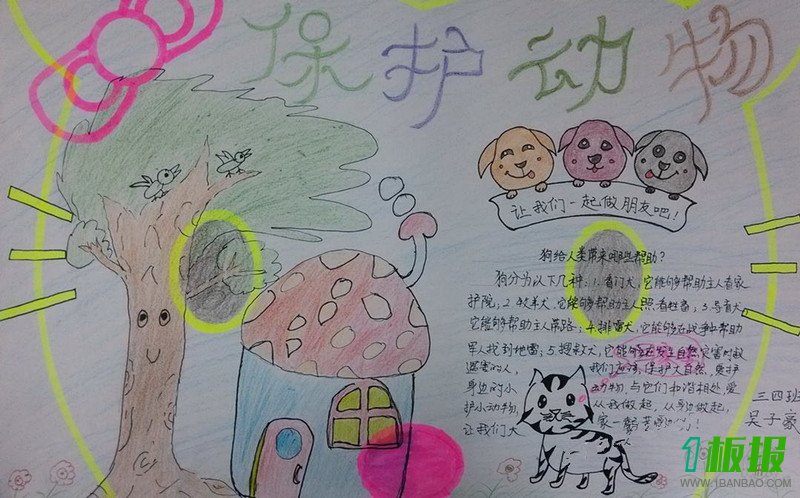 保护动物
让我们一起做朋友吧!
狗给人类带来哪些帮助?
狗分为以下几种:1.看门犬,它能够帮助主人看家
护院;2.牧羊犬,它能够帮助主人照看牲畜;3.导盲犬
它能够帮助主人带路;4.排雷犬,它能够在战争中帮助
军人找到地雷;5.搜救犬,它能够在发生自然灾害时救
遇害的人,我们应该保护大自然,爱护
身边的小动物,与它们和谐相处,爱
护小动物,从我做起,从身边做起,
让我们大家一起努力吧!
三四班
吴子豪
1板报
WWW.1BANBAO.COM